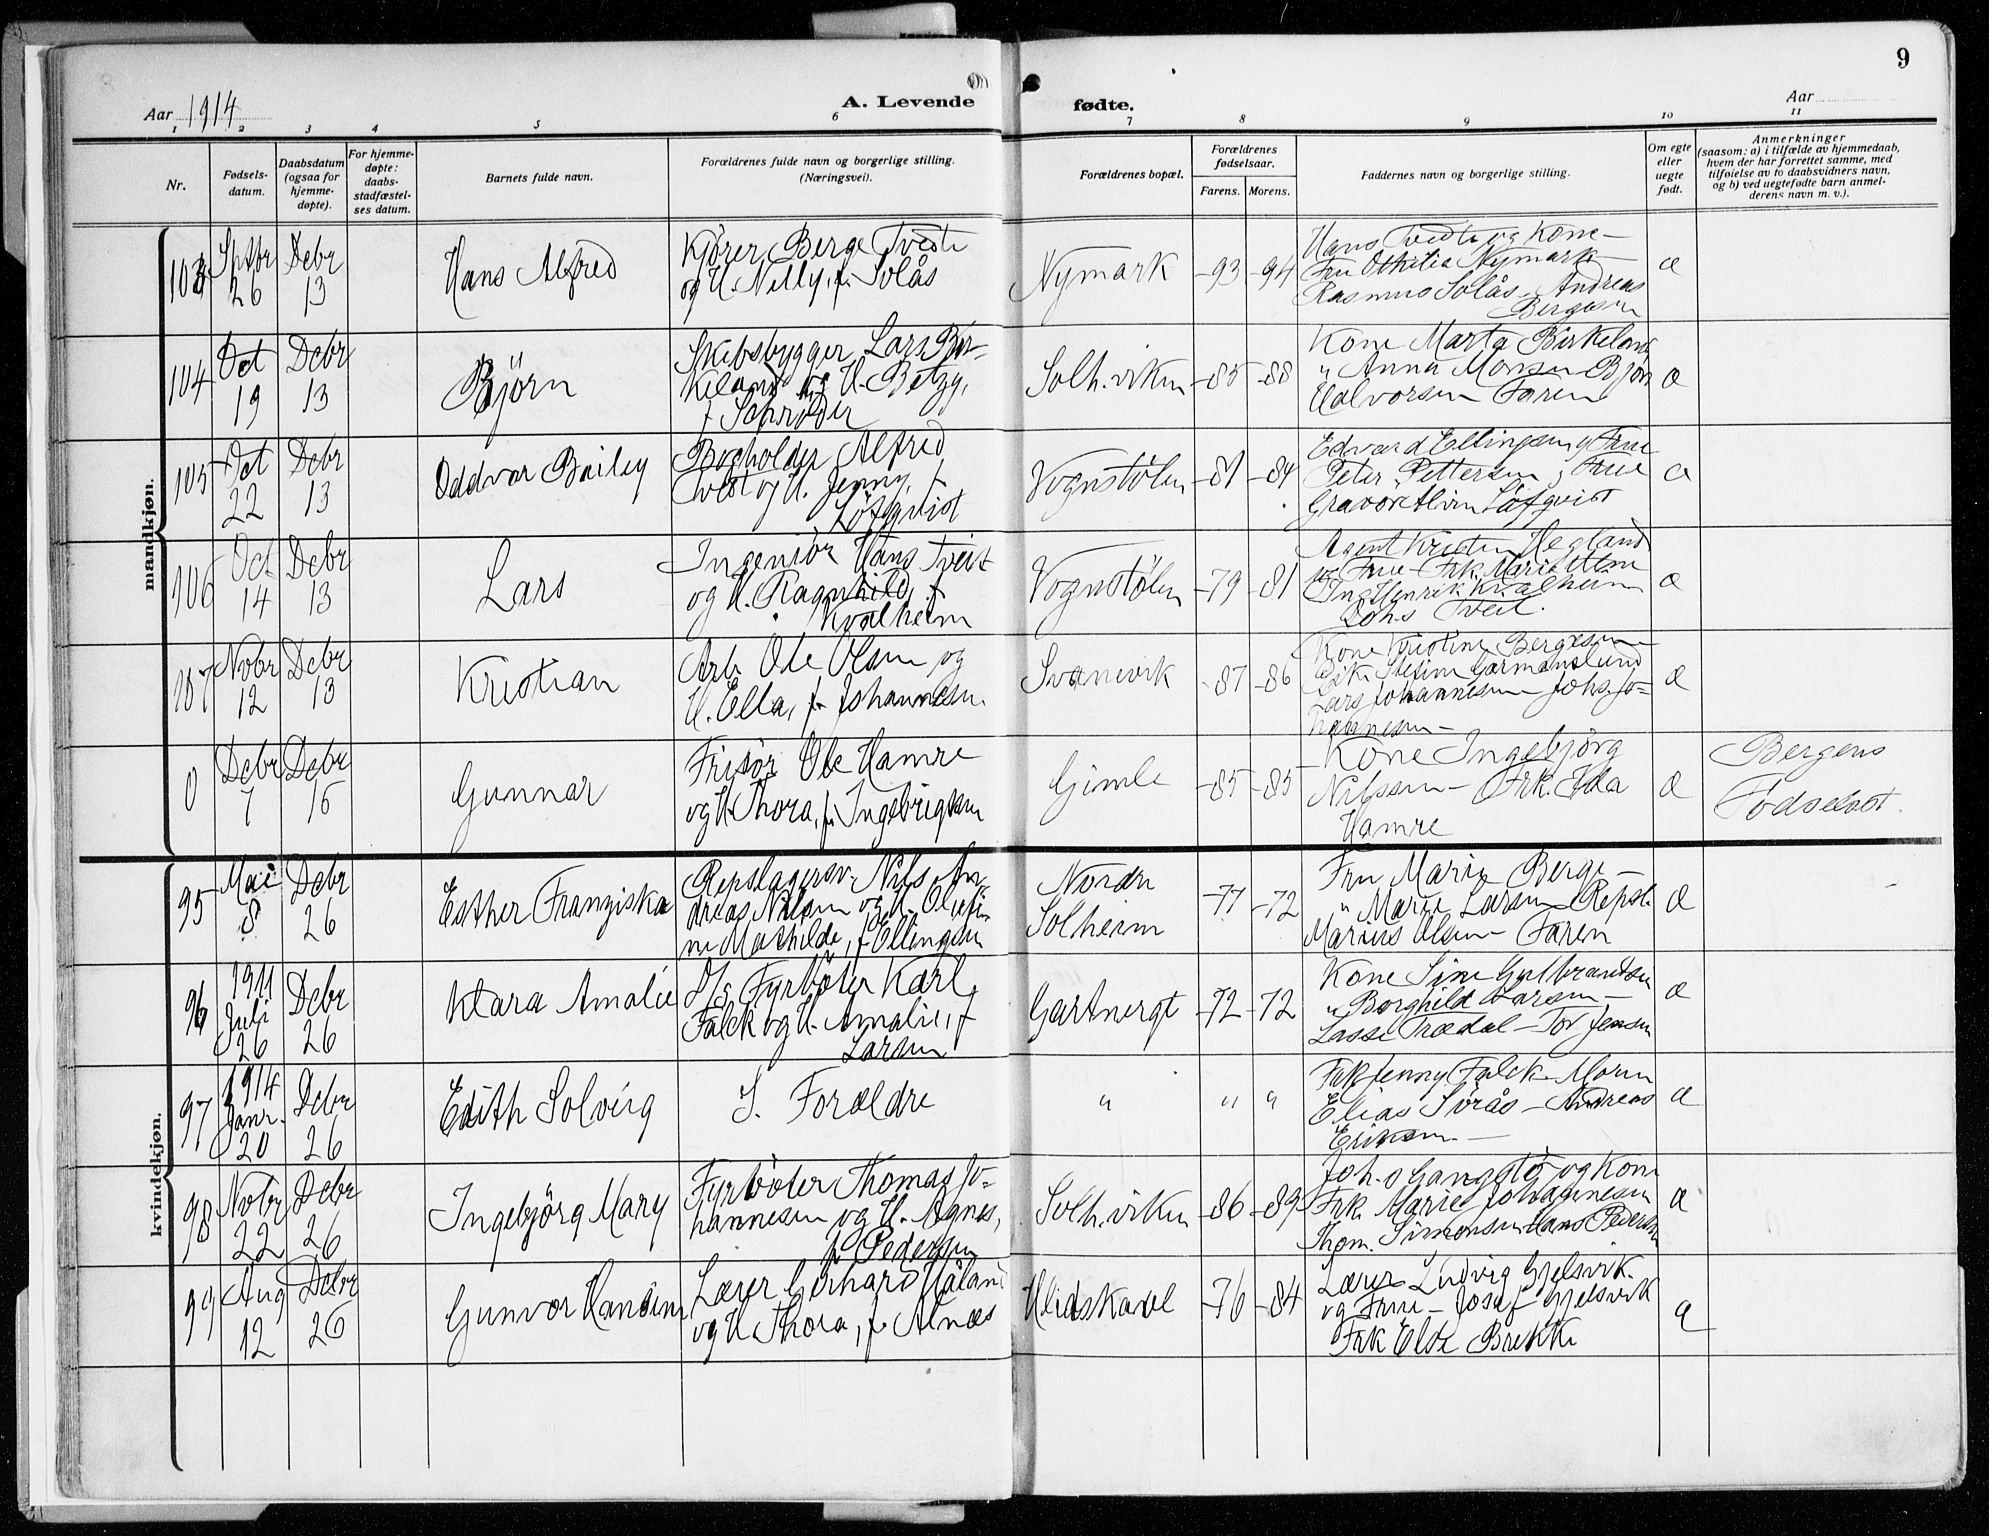 9
Aar 1914
A. Levende fødte.
Aar
1 2 3 4 5 6 7 8 9 10 11
Nr.
Fødsels-
datum.
Daabsdatum
(ogsaa for
hjemme-
døpte).
For hjemme-
døpte:
daabs-
stadfæstel-
ses datum.
Barnets fulde navn.
Forældrenes fulde navn og borgerlige stilling.
(Næringsvei).
Forældrenes bopæl.
Forældrenes
fødselsaar.
Farens. Morens.
Faddernes navn og borgerlige stilling.
Om egte
eller
uegte
født.
Anmerkninger
(saasom: a) i tilfælde av hjemmedaab,
hvem der har forrettet samme, med
tilføielse av to daabsvidners navn,
og b) ved uegtefødte barn anmel-
derens navn m. v.).
mandkjøn.
103
Sptbr
26
Debr
13
Hans Alfred
Kjører Berge Tvedt
og H. Nelly, f. Solås
Nymark
-93
-94
Hans Tvedt og Kone -
Fru Othilia Nymark -
Rasmus Solås - Andreas
Bergesen
æ
104
Oct
19
Debr
13
Björn
Skibsbygger Lars Bir-
keland og H. Betzy,
f. Schrøder
Solh.viken
-85
-88
Kone Marta Birkeland
" Anna Monsen - Bjørn
Halvorsen - Faren
æ
105
Oct
22
Debr
13
Oddvar Bailey
Bogholder Alfred
Tvedt og H. Jenny, f.
Löfqvist
Vognstølen
-81
-84
Edvard Ellingsen og Frue
Peter Pettersen og Frue
Gravør Alvin Löfqvist
æ
106
Oct
14
Debr
13
Lars
Ingeniør Hans Tveit
og H. Ragnhild, f.
Kvalheim
Vognstølen
-79
-81
Agent Kristen Hegland
og Frue - Frk. Marie
Ing. Henrik Kvalheim
Johs Tveit.
æ
107
Novbr
12
Debr
13
Kristian
Arb. Ole Olsen og
H. Ella, f. Johannesen.
Svanevik
-87
-86
Kone Kristine Bergesen
Lars Johannesen - Johs. Jo-
hannesen -
æ
0
Debr
7
Debr
16
Gunnar
Frisør Ole Hamre
og H. Thora, f. Ingebrigtsen
Gimle
-85
-85
Kone Ingebjörg
Nilssen - Frk. Ida
Hamre
æ
Bergens
Fødselsst.
kvindekjøn.
95
Mai
8
Debr
26
Esther Franziska
Repslagersv. Nils An-
dreas Nilsen og H. Olufi-
ne Mathilde, f. Ellingsen
Nordre
Solheim
-77
-72
Fru Marie Berge -
" Marie Larsen - Repsl.
Marius Olsen - Faren
æ
96
1911
Juli
26
Debr
26
Klara Amalie
D/s Fyrbøter Karl
Falck og H. Amalie, f.
Larsen
Gartnergt
-72
-72
Kone Sine Gulbrandsen
" Borghild Larsen -
Lasse Trædal - Tor Jensen
æ
97
1914
Janr.
20
Debr
26
Edith Solveig
S. Forældre
"
"
"
Frk Jenny Falck - Moren
Elias Sörås - Andreas
Eriksen -
æ
98
Novbr
22
Debr
26
Ingebjörg Mary
Fyrbøter Thomas Jo-
hannesen og H. Agnes,
f. Pedersen
Solh.viken
-86
-89
Joh.s Gangstø og Kone
Frk. Marie Johannesen
Thom. Simonsen Hans Pedersen
æ
99
Aug
12
Debr
26
Gunvor Hansine
Lærer Gerhard Håland
og H. Thora, f. Alnæs
Hlidskavl
-76
-84
Lærer Ludvig Gjelsvik
og Frue - Josef Gjelsvik
Frk Else Brekke
æ